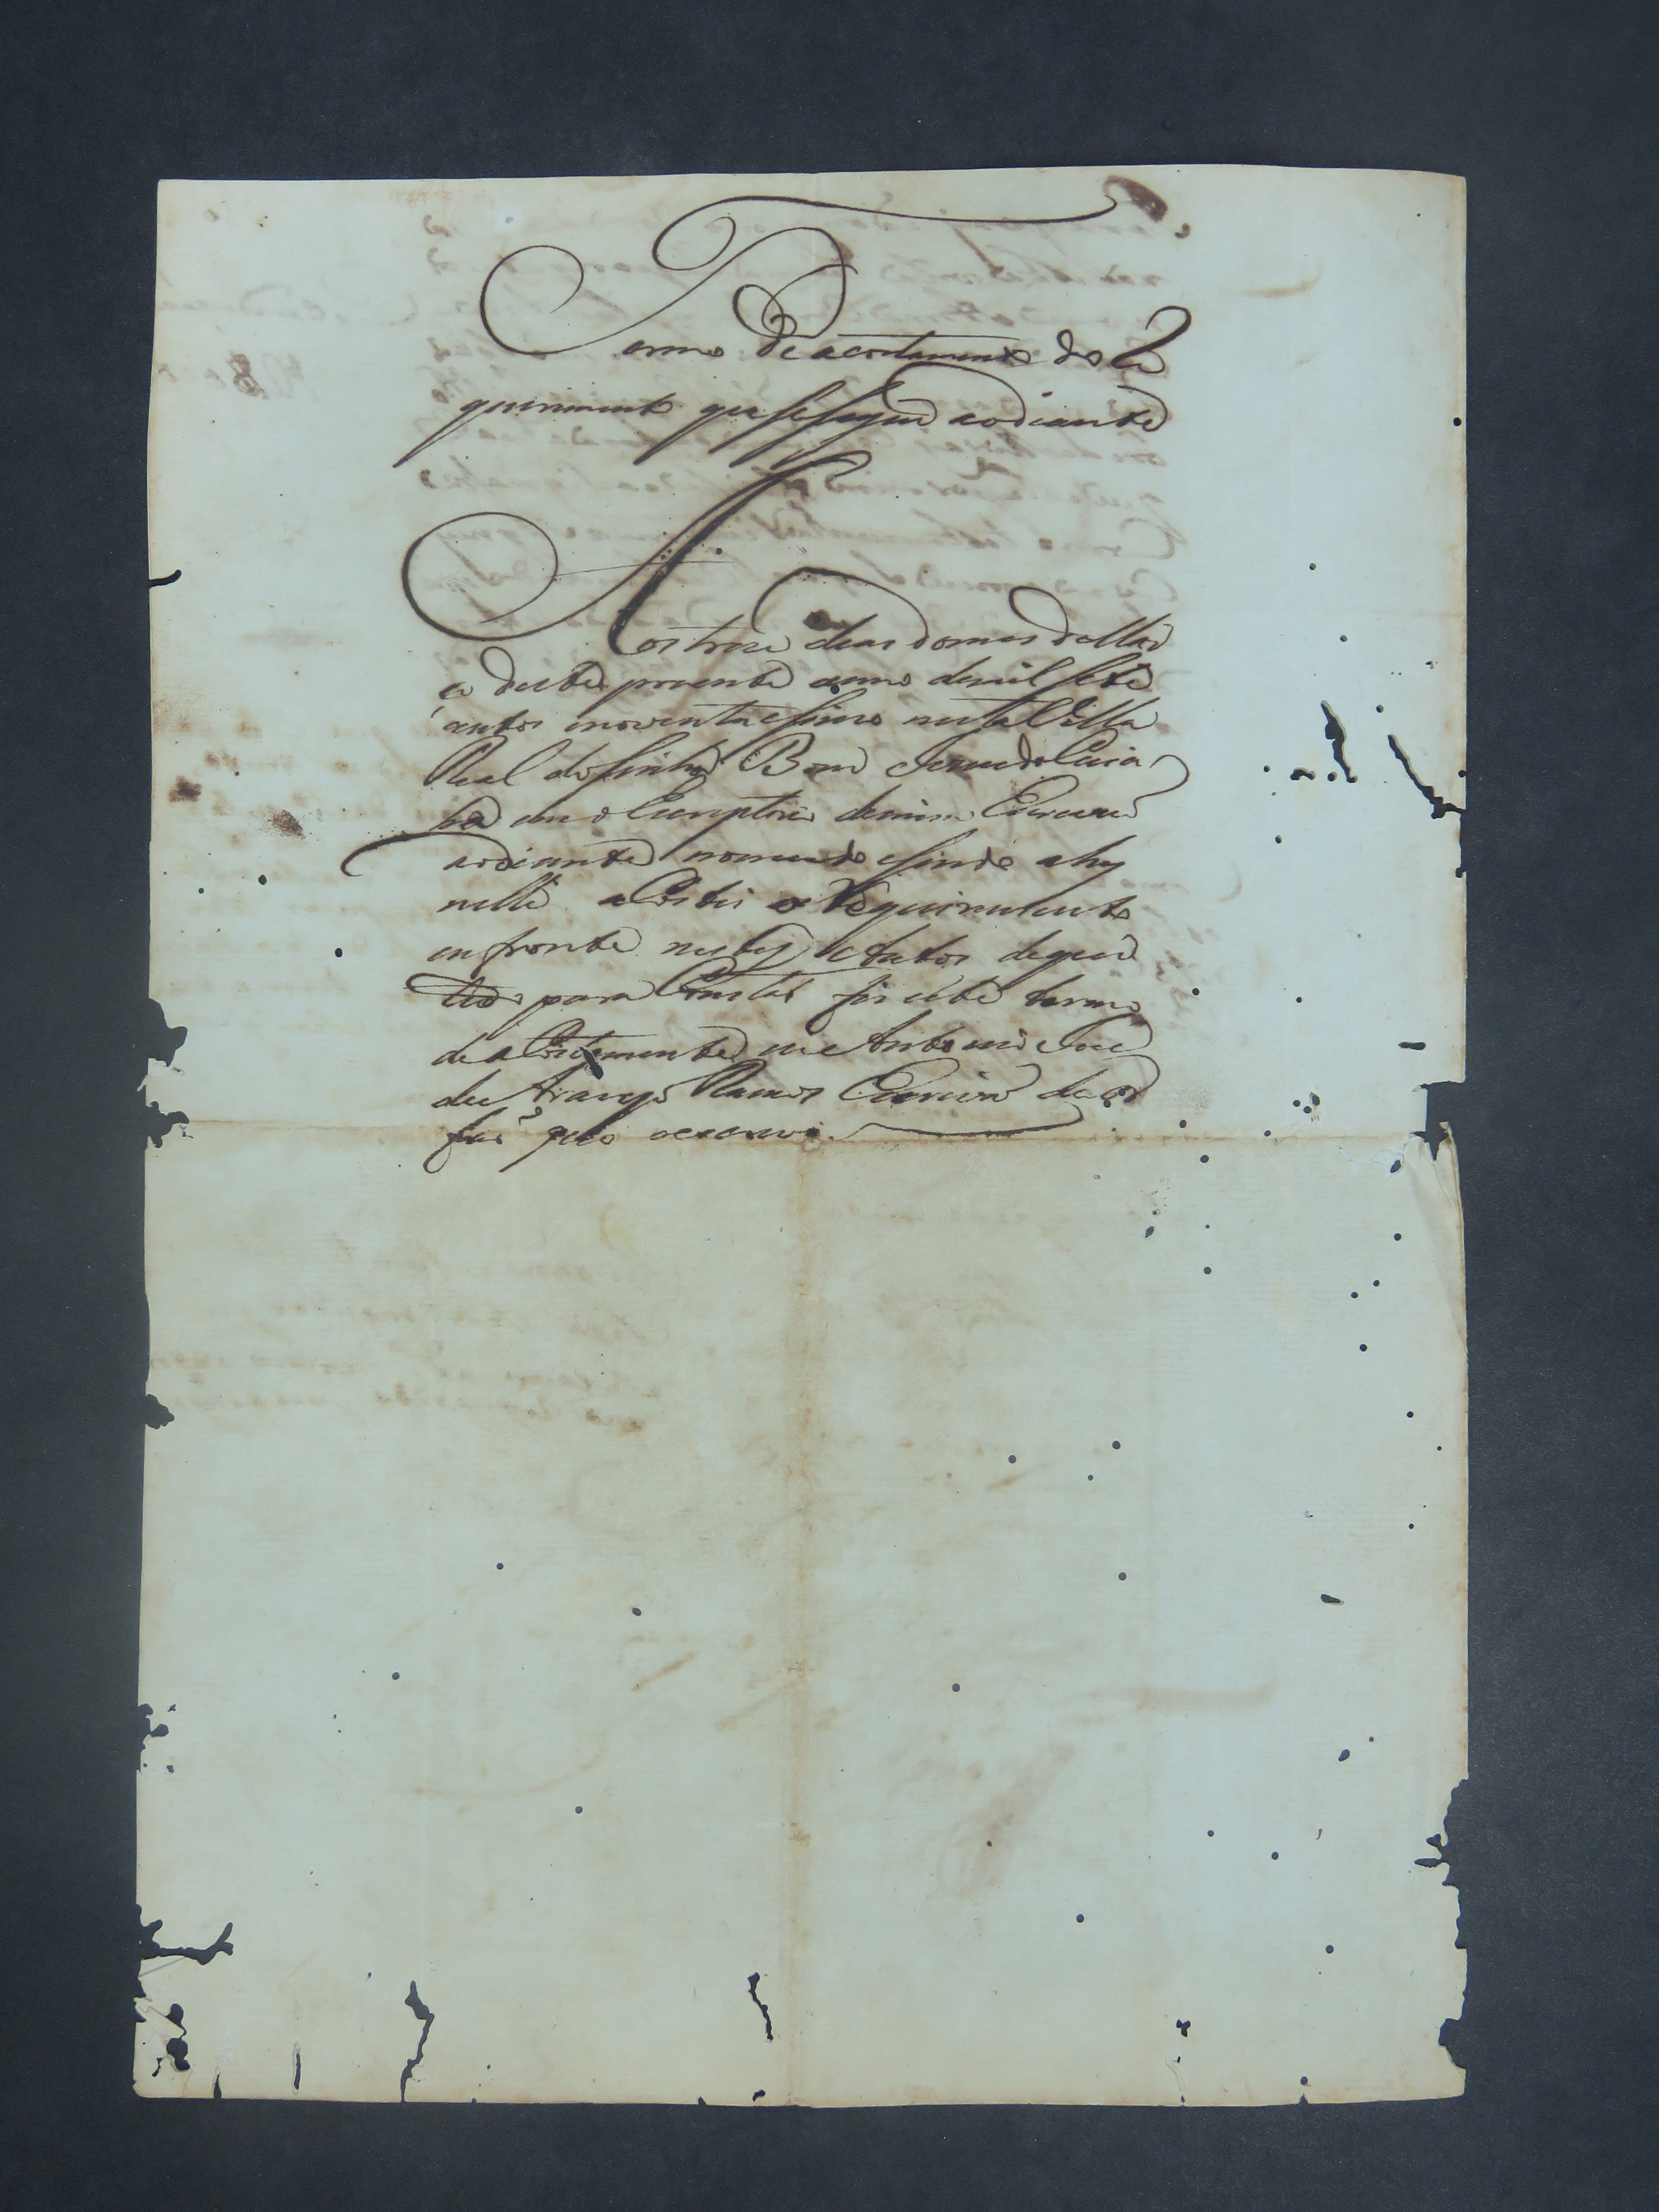 Termo de acostamento do Re
querimento que se segue aodiante
Aos treze dias domes de Mar
ço deste prezente anno demil sete
centos enoventa esinco nesta Villa
Real do Senhor Bom Jesus do Cuia
bá em o Escriptorio demim Escrivaõ
aodiante nomeado esendo ahy
nelle aCostei o Requerimento
enfronte nestes Autos deque
para Constar fis este termo
de aCostamento eu Antonio Joze
de Araujo Ramos Escrivaõ de or
faõs que o escrevi.